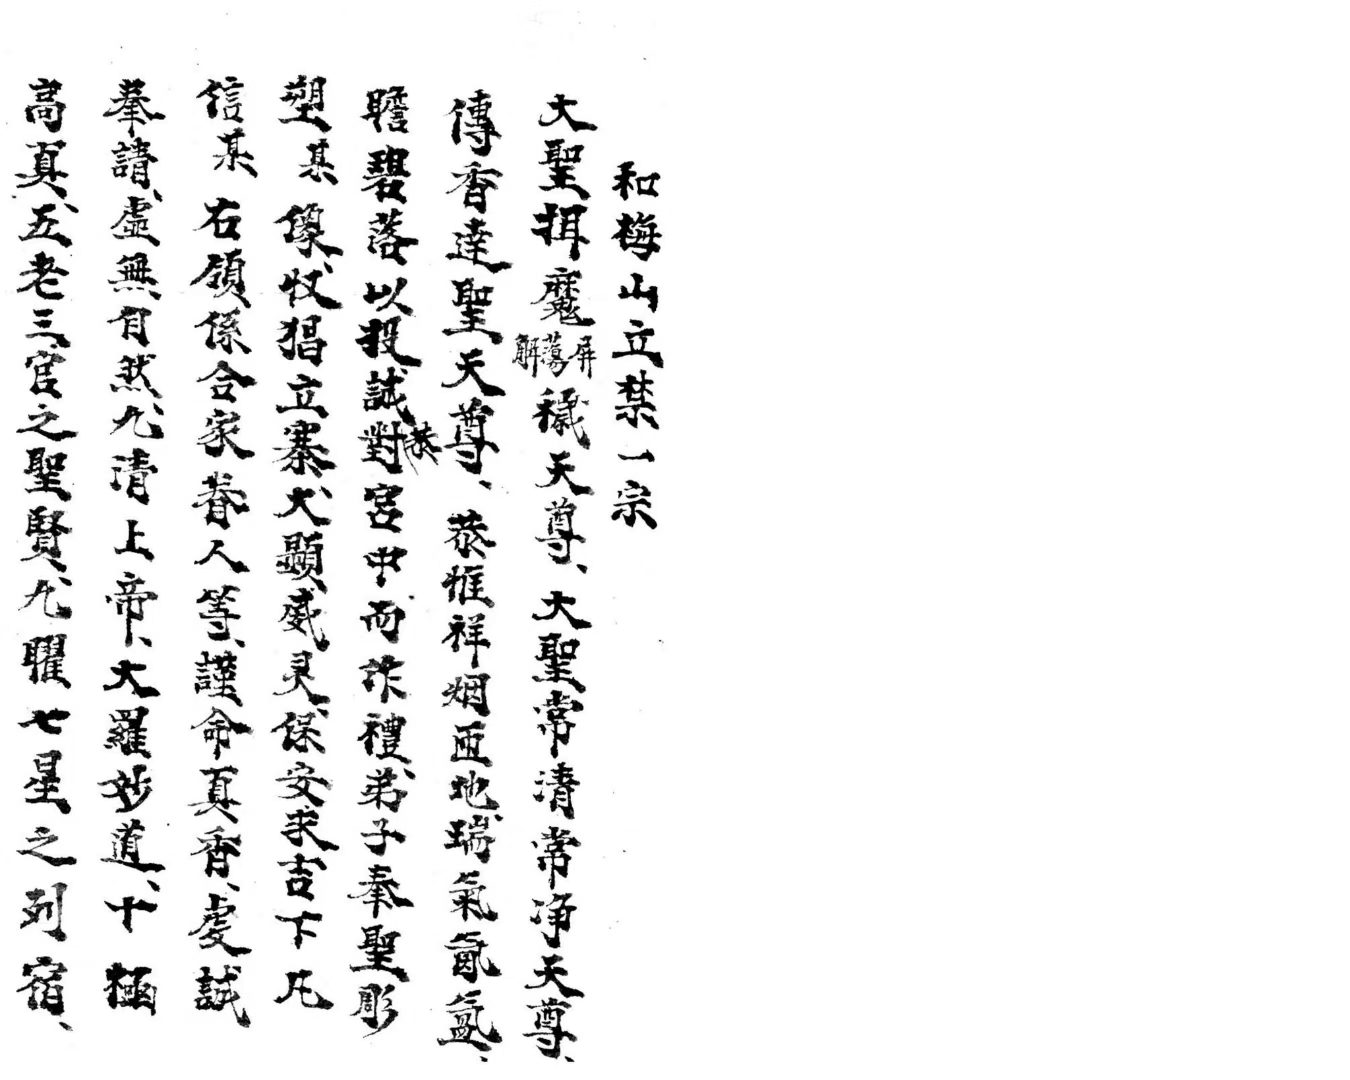 和梅山立禁一宗
大聖揖魔屏蕩解穢天尊、大聖常清常净天尊、
傳香達聖天尊、恭惟祥烟匝地、瑞氣氤氳、
瞻碧落以投誠、對宮中而作禮、弟子奉聖彫
塑某像、收猖立寨、大顯威灵、保安求吉下凡
信某右領係合家眷人等、謹命真香、虔誠
奉請、虛無自然、九清上帝、大羅妙道、十極
高真、五老三官之聖賢、九曜七星之列宿、